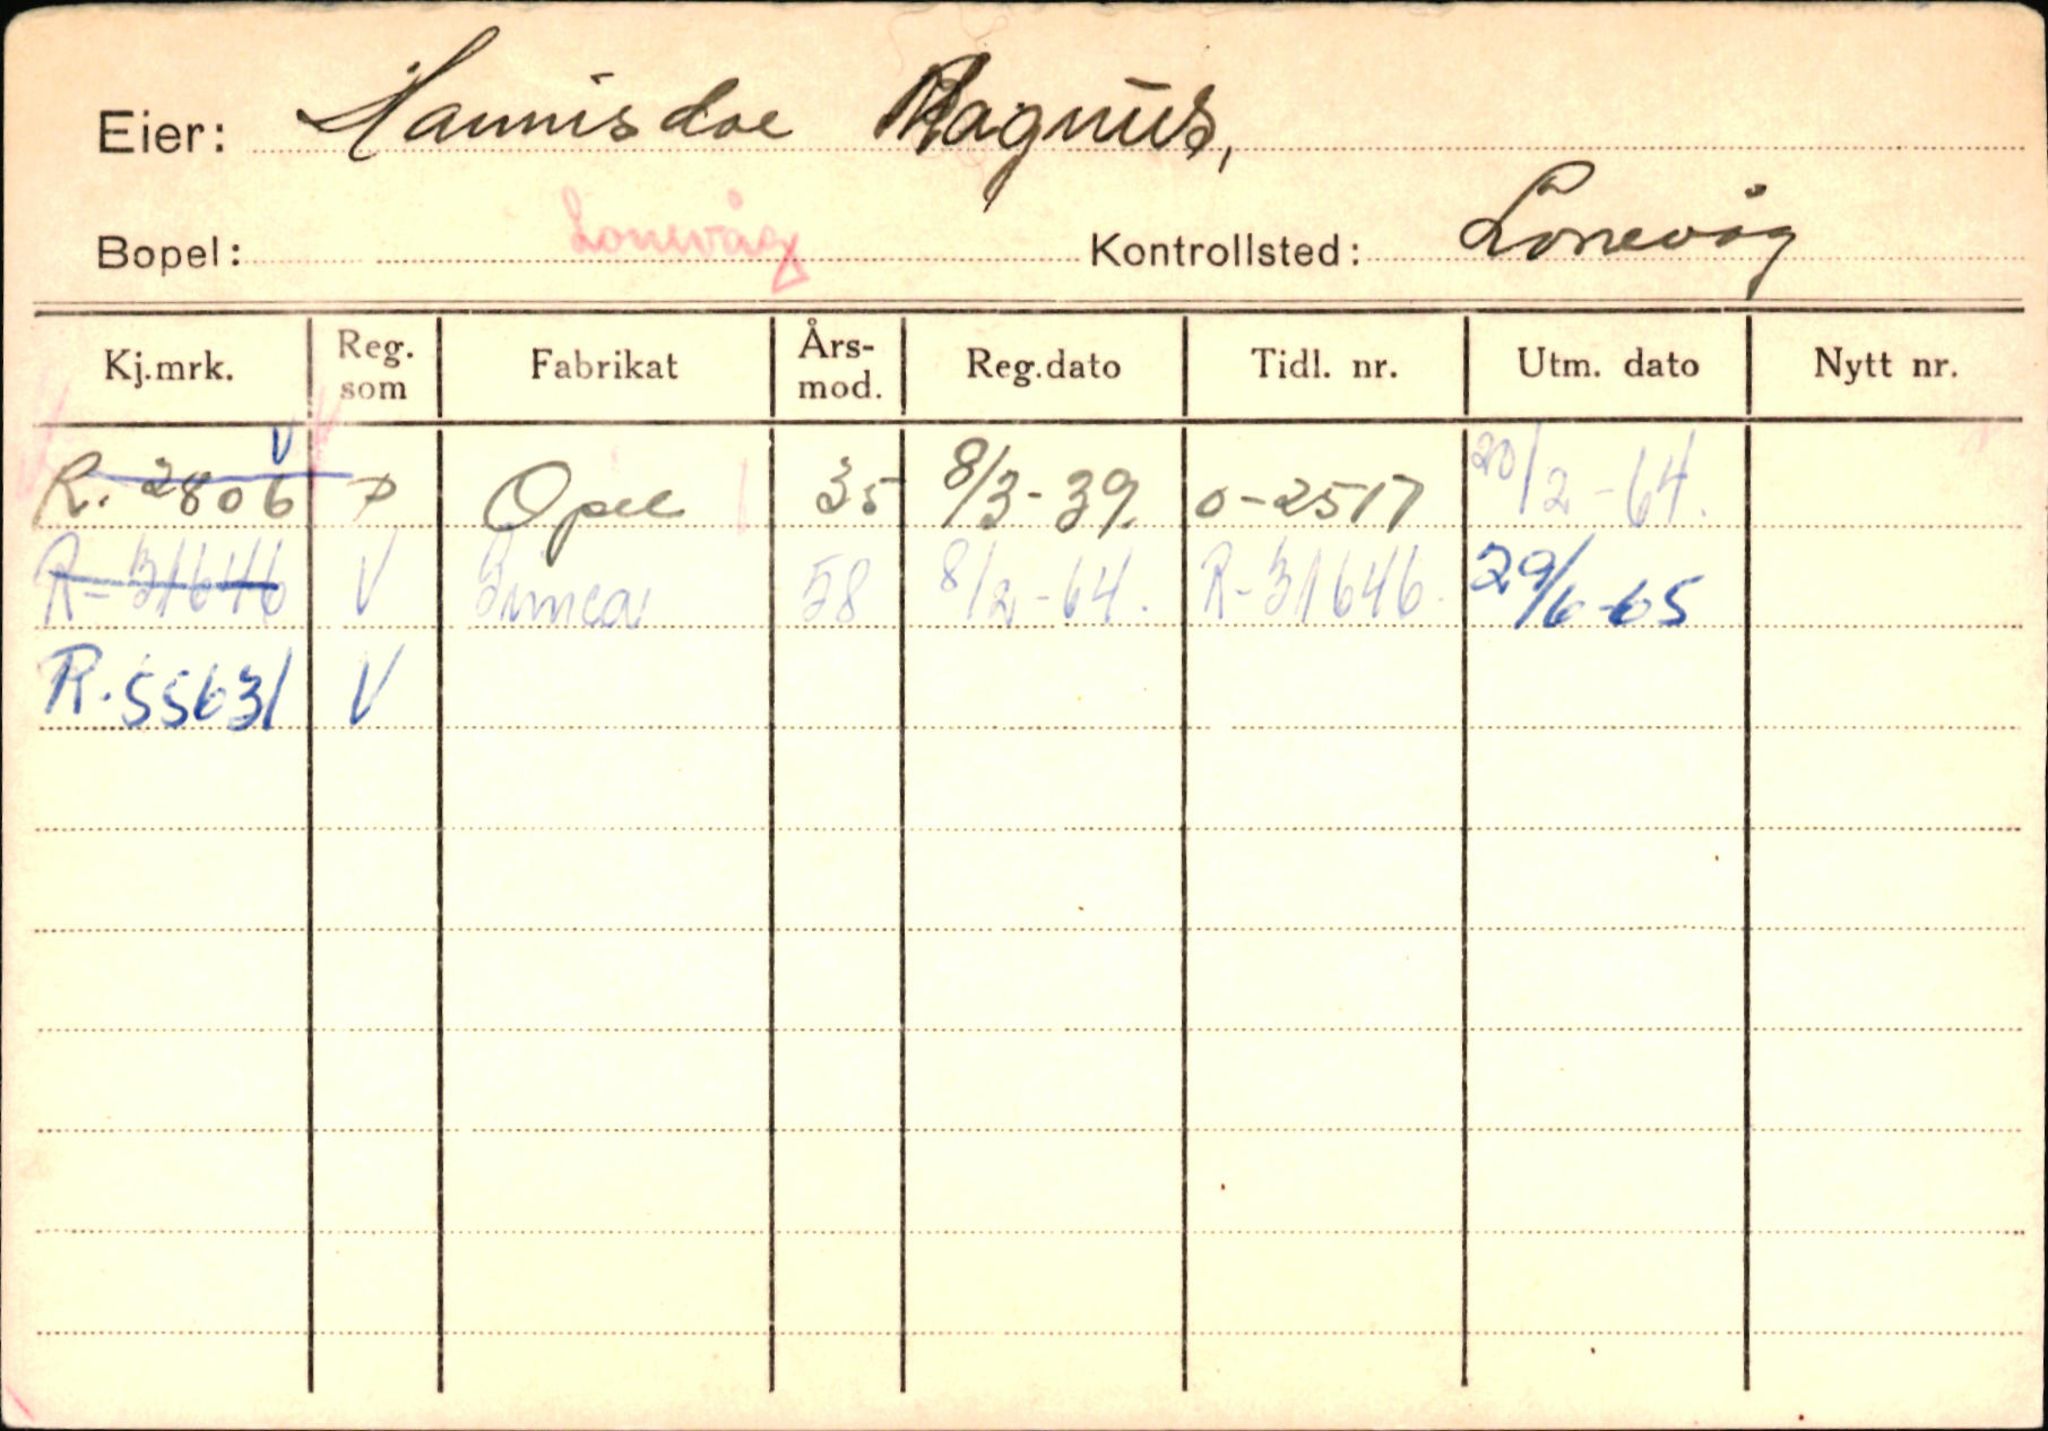 Eier: Hannisdal Magnus,
Bopel: Lonevåg Kontrollsted: Lonevåg
Kj.mrk. Reg. som Fabrikat Års-mod. Reg.dato Tidl. nr. Utm. dato Nytt nr.
V
R. 2806 P Opel 35 8/3-39. O-2517 20/2-64.
R-31646 V Simca 58 8/2-64. R-31646. 29/6-65
R.55631 V